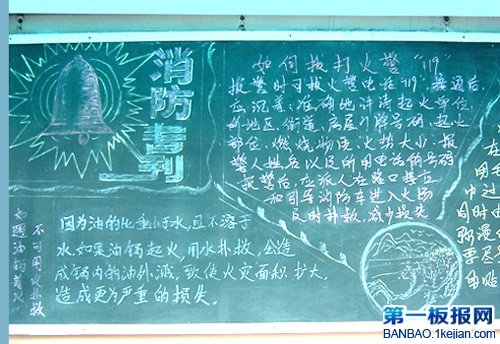 消防专刊
如何拨打火警"119"
报警时可拨火警电话"119",接通后,
应沉着,准确地讲清起火单位,
所地区、街道、房屋门牌号码、起火
部位、燃烧物质、火势大小、报
警人姓名以及所用电话的号码
报警后,应派人在路口接应
和引导消防车进入火场
及时扑救,减少损失
如遇油锅着火
不可用水扑救
因为油的比重小于水,且不溶于
水,如果油锅起火,用水扑救,会造
成锅内的油外溅,致使火灾面积扩大,
造成更为严重的损失。
在
第一板报网
BANBAO.1kejian.com